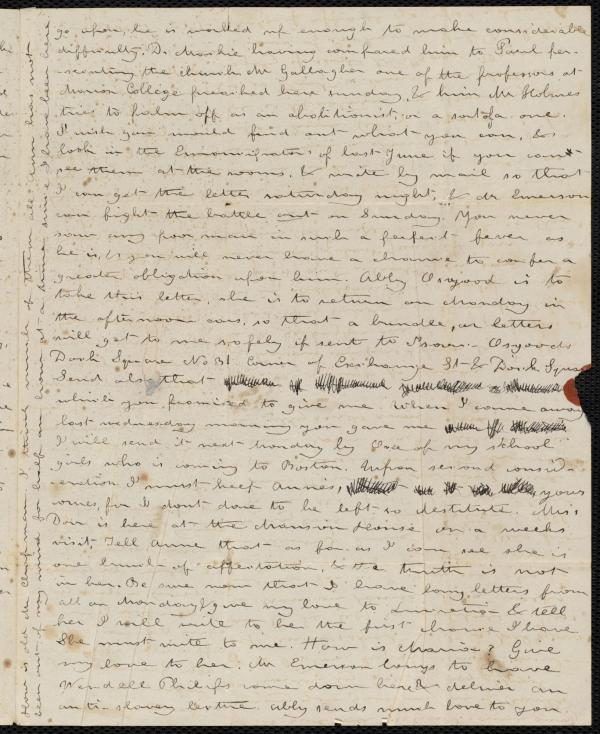 go upon, he is worked up enough to make considerable
difficulty. Dr. Mackie having compared him to Paul per-
secuting the church. Mr Gallagher one of the professors at
Marion College preached here sunday, & him Mr Holmes
tries to palm off as an abolitionist, or a sort of a one.
I wish you would find out what you can, &
look in the Emancipators of last June if you can't
see them at the rooms, & write by mail so that
I can get the letter saturday night, & Mr Emerson
can fight the battle out on Sunday. You never
saw any poor man in such a perfect fever as
he is, & you will never have a chance to confer a
greater obligation upon him. Abby Osgood is to
take this letter, she is to return on Monday in
the afternoon cars, so that a bundle, or letters
will get to me safely if sent to Isaac Osgoods
Dock Square No 31 Corner of Exchange St & Dock Square
Send also that
which you promised to give me when I came away
last wednesday morning you gave me
I will send it next monday by one of my school
girls who is coming to Boston. Upon second consid-
eration I must keep Annes, yours
comes, for I dont dare to be left so destitute. Miss
is here at the Mansion House on a weeks
visit, Tell Anne that as far as I can see she is
one lump of affectation, & the truth is not
in her. Be sure now that I have long letters from
all on Monday, give my love to Lucretia & tell
her I will write to her the first chance I have
She must write to me. How is Maria? Give
my love to her. Mr Emerson longs to have
Wendell Phillips come down here & deliver an
anti-slavery lecture. Abby sends much love to you
How is old Mr Chapman? I dreamt much of them all
been out of my mind for half an hour at a time since I have been here